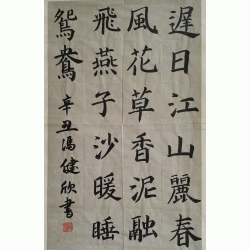 遲日江山麗春
風花草香泥融
飛燕子沙暖睡
鴛鴦 辛丑馮健欣書